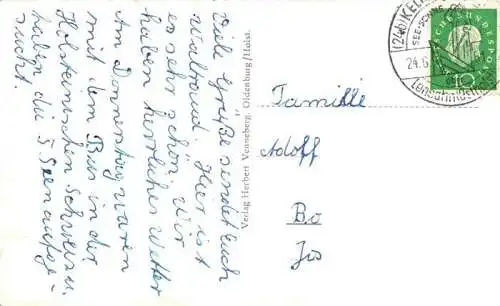 Viele Grüße sendet Euch
Waltraud. Hier ist
es sehr schön. Wir
haben herrliches Wetter
Am Donnerstag waren
mit dem Bus in der
Holsteinischen Schweiz u.
haben die 5 Seenaufge-
sucht.
Verlag Herbert Venneberg, Oldenburg/Holst.
Familie
Adolf
Bo
(24b) KEL
24.6.
DEUTSCHE BUNDESPOST
10